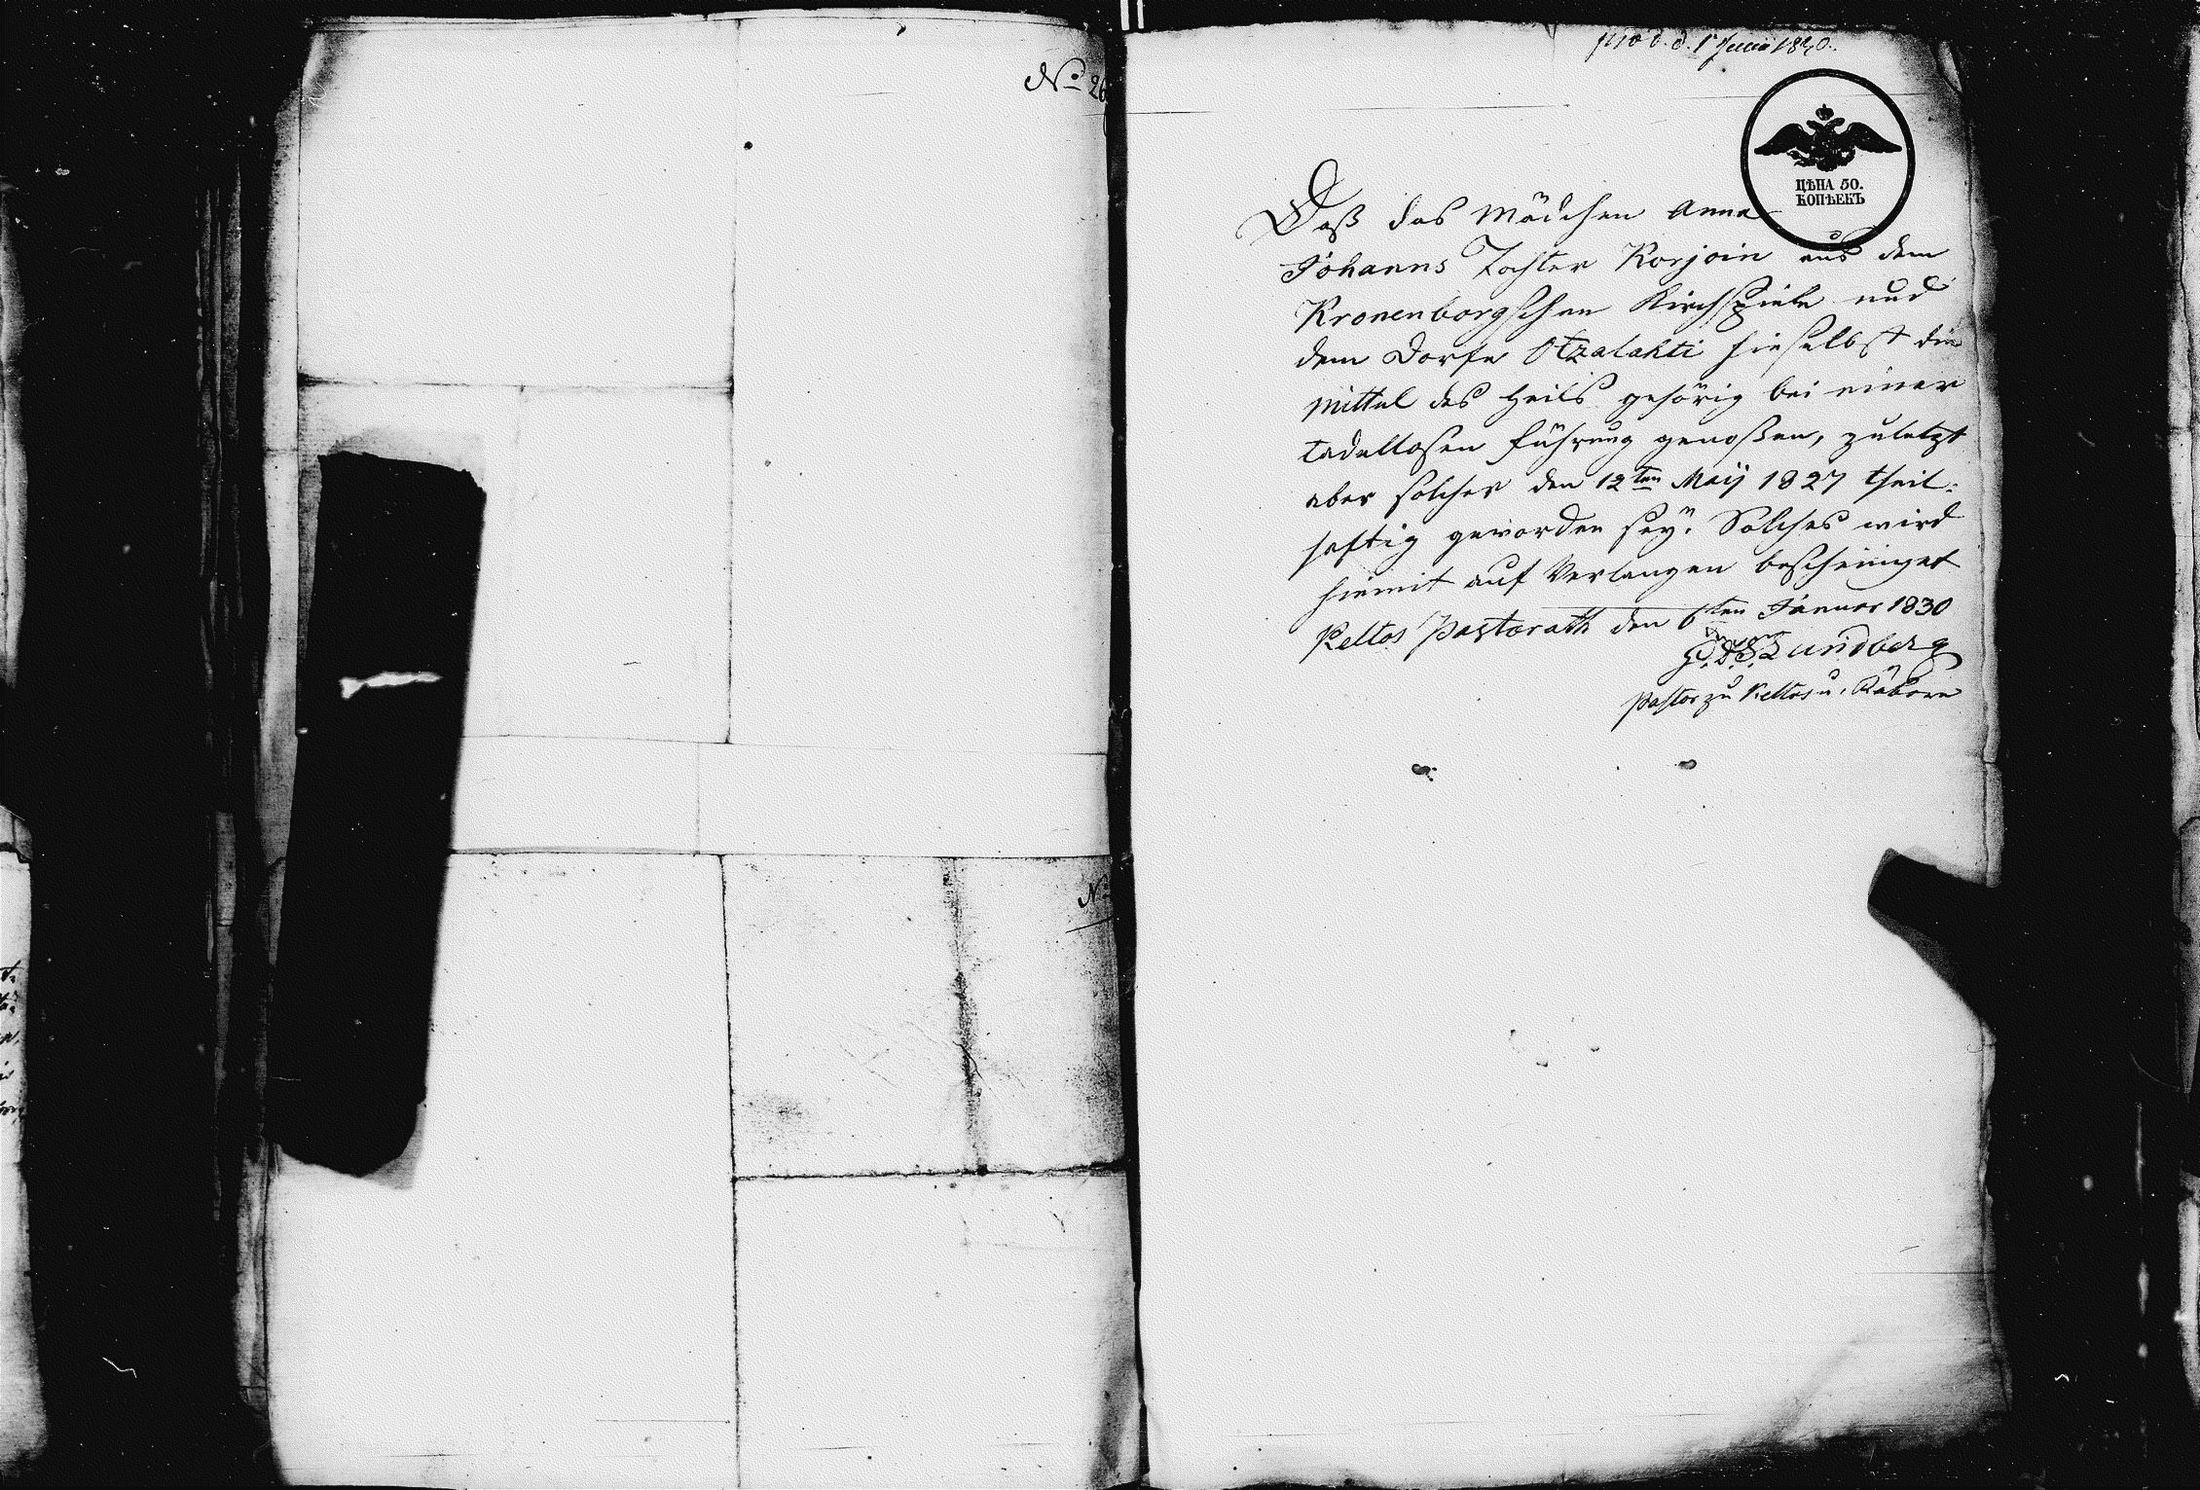 No 26
No
prod. d. 1 Junii 1830.
ЦѢНА 50.
КОПѢЕКЪ
Daß das Mädchen Anna
Johanns Tochter Korjoin aus dem
Kronenborgschen Kirchspiele und
dem Dorfe Otzalahti hieselbst die
Mittel des Heils gehörig bei einer
tadellosen Führung genoßen, zuletzt
aber solcher den 12ten Maij 1827 theil-
haftig geworden seÿ. Solches wird
hiemit auf Verlangen bescheiniget
Keltos Pastorath den 6ten Januar 1830
Lundberg
Pastor zu Keltos u.